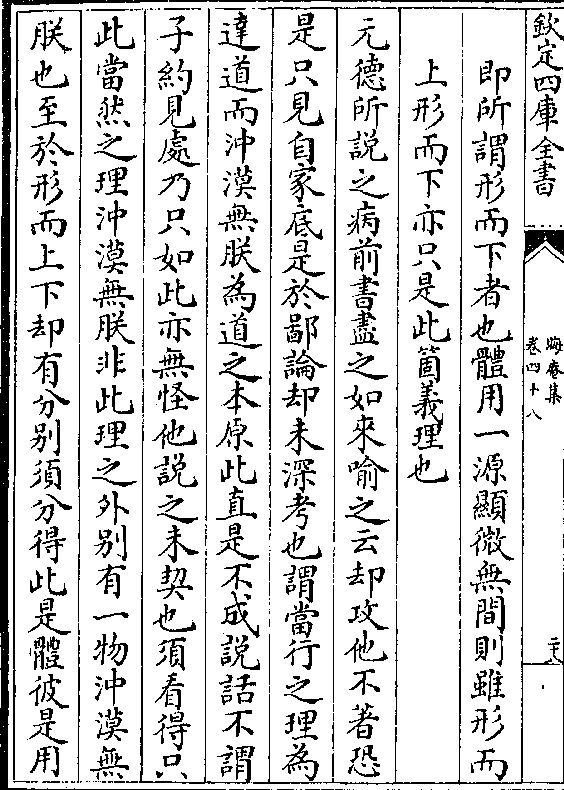 欽定四庫全書
晦庵集
卷四十八
二十八
即所謂形而下者也體用一源顯微無間則雖形而
上形而下亦只是此箇義理也
元德所說之病前書盡之如來喻之云却攻他不著恐
是只見自家底是於鄙論却未深考也謂當行之理為
達道而沖漠無朕為道之本原此直是不成說話不謂
子約見處乃只如此亦無怪他說之未契也須看得只
此當然之理沖漠無朕非此理之外别有一物沖漠無
朕也至於形而上下却有分别須分得此是體彼是用